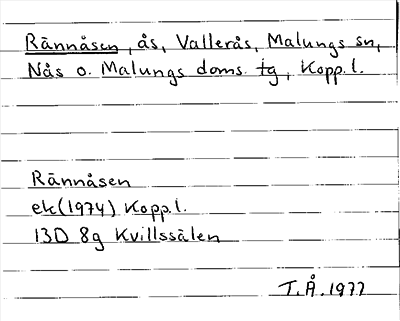 Rännåsen, ås, Vallerås, Malungs sn,
Nås o. Malungs doms. tg, Kopp.l.
Rännåsen
ek(1974) Kopp.l.
13D 8g Kvillssälen
T.Å.1977